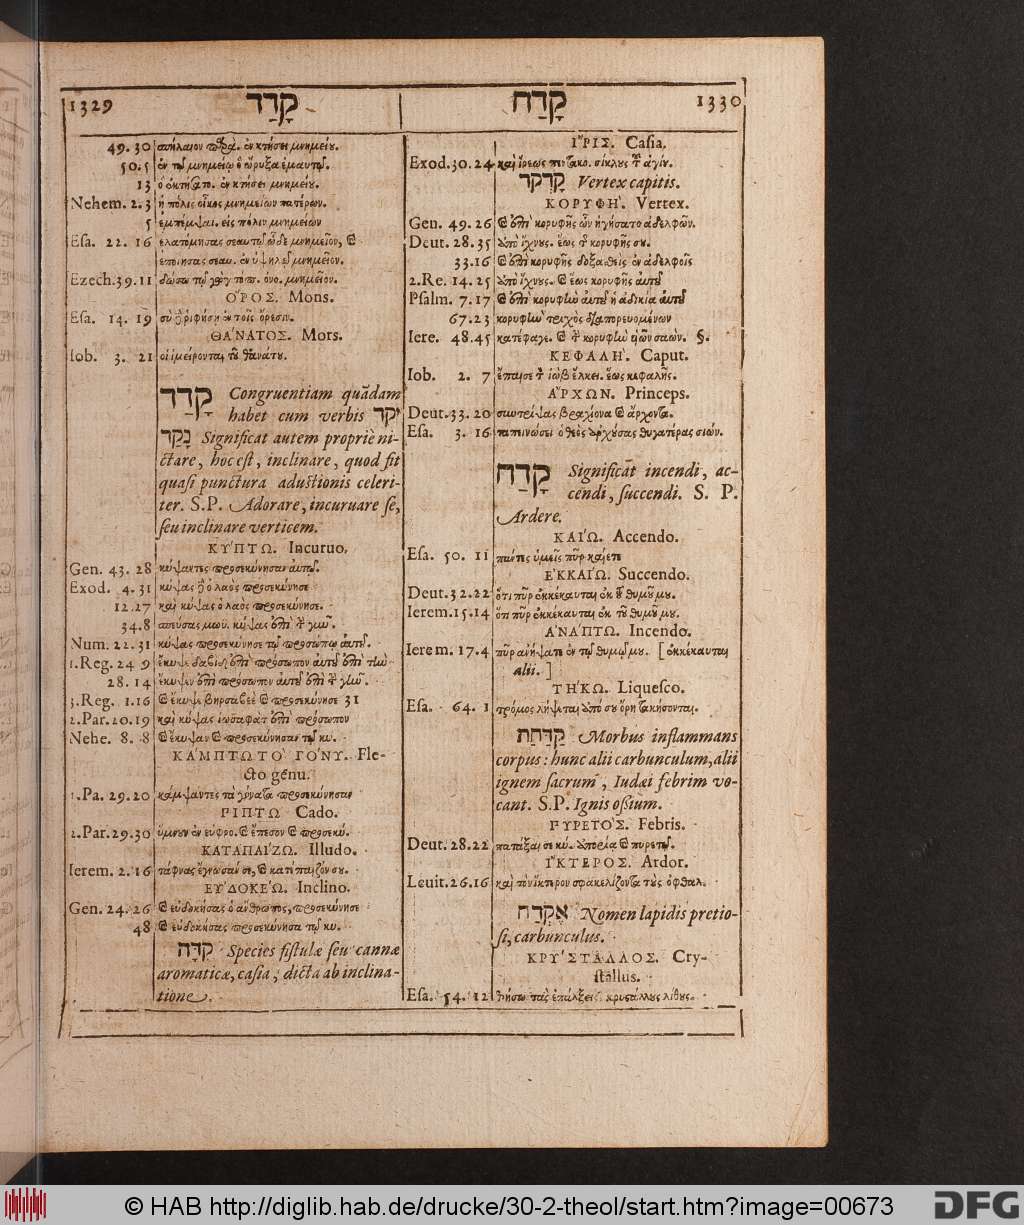 1329 קָדַד
49. 30 σπήλαιον παρὰ. ἐν κτήσει μνημείου.
50. 5 ἐν τῷ μνημείῳ ὃ ὤρυξα ἐμαυτῷ.
13 ὃ ἐκτήσατο. ἐν κτήσει μνημείου.
Nehem. 2. 3 ἡ πόλις οἶκος μνημείων πατέρων.
5 πόλιν μνημείων
Esa. 22. 16 ἐλατόμησας σεαυτῷ ὧδε μνημεῖον, καὶ
ἐποίησας σεαυ. ἐν ὑψηλῷ μνημεῖον.
Ezech. 39. 11 δώσω τῷ γὼγ τόπ. ὀνο. μνημεῖον.
ὌΡΟΣ. Mons.
Esa. 14. 19 σὺ ἐν τοῖς ὄρεσιν.
ΘΑΝΑΤΟΣ. Mors.
Iob. 3. 21 οἳ ἱμείρονται τοῦ θανάτου.
קָדַד Congruentiam quãdam
habet cum verbis יקד
נָקַד Significat autem propriè ni-
ctare, hoc est, inclinare, quod fit
quasi punctura adustionis celeri-
ter. S.P. Adorare, incuruare se,
seu inclinare verticem.
ΚΥΠΤΩ. Incuruo.
Gen. 43. 28 κύψαντες προσεκύνησαν αὐτῷ.
Exod. 4. 31 κύψας δὲ ὁ λαὸς προσεκύνησε
12. 27 καὶ κύψας ὁ λαὸς προσεκύνησε.
34. 8 σπεύσας μωυ. κύψας ἐπὶ τὴν γῆν.
Num. 22. 31 κύψας προσεκύνησε τῷ προσώπῳ αὐτοῦ.
1. Reg. 24 9 ἔκυψε δαβὶδ ἐπὶ πρόσωπον αὐτοῦ ἐπὶ τὴν
28. 14 ἔκυψεν ἐπὶ πρόσωπον αὐτοῦ ἐπὶ τὴν γῆν.
3. Reg. 1. 16 καὶ ἔκυψε βηρσαβεὲ καὶ προσεκύνησε 31
2. Par. 20. 19 καὶ κύψας ἰωσαφὰτ ἐπὶ πρόσωπον
Nehe. 8. 8 καὶ ἔκυψαν καὶ προσεκύνησαν τῷ κυ.
ΚΑΜΠΤΩ ΤΟ ΓΟΝΥ. Fle-
cto genu.
1. Pa. 29. 20 κάμψαντες τὰ γόνατα προσεκύνησαν
ΠΙΠΤΩ Cado.
2. Par. 29. 30 ὕμνουν ἐν εὐφρο. καὶ ἔπεσον καὶ προσεκύ.
ΚΑΤΑΠΑΙΖΩ. Illudo.
Ierem. 2. 16 τάφνας ἔγνωσάν σε, καὶ κατέπαιζόν σου.
ΕΥΔΟΚΕΩ. Inclino.
Gen. 24. 26 καὶ εὐδοκήσας ὁ ἄνθρωπος, προσεκύνησε
48 καὶ εὐδοκήσας προσεκύνησα τῷ κυ.
קִדָּה Species fistulæ seu cannæ
aromaticæ, casia, dicta ab inclina-
tione.
קָדַח 1330
ἾΡΙΣ. Casia.
Exod. 30. 24 καὶ ἴρεως πεντακο. σίκλους τοῦ ἁγίου.
קָדְקֹד Vertex capitis.
ΚΟΡΥΦΗ. Vertex.
Gen. 49. 26 καὶ ἐπὶ κορυφῆς ὧν ἡγήσατο ἀδελφῶν.
Deut. 28. 35 ἀπὸ ἴχνους. ἕως τῆς κορυφῆς σου.
33. 16 καὶ ἐπὶ κορυφῆς δοξασθεὶς ἐν ἀδελφοῖς
2. Re. 14. 25 ἀπὸ ἴχνους. καὶ ἕως κορυφῆς αὐτοῦ
Psalm. 7. 17 καὶ ἐπὶ κορυφὴν αὐτοῦ ἡ ἀδικία αὐτοῦ
67. 23 κορυφὴν τριχὸς διαπορευομένων
Iere. 48. 45 κατέφαγε. καὶ τὴν κορυφὴν υἱῶν σαών. §.
ΚΕΦΑΛΗ. Caput.
Iob. 2. 7 ἔπαισε τὸν ἰὼβ ἕλκει. ἕως κεφαλῆς.
ἌΡΧΩΝ. Princeps.
Deut. 33. 20 συντρίψας βραχίονα καὶ ἄρχοντα.
Esa. 3. 16 ταπεινώσει ὁ θεὸς ἀρχούσας θυγατέρας σιών.
קָדַח Significãt incendi, ac-
cendi, succendi. S. P.
Ardere.
ΚΑΙΩ. Accendo.
Esa. 50. 11 πάντες ὑμεῖς πῦρ καίετε
ἘΚΚΑΙΩ. Succendo.
Deut. 32. 22 ὅτι πῦρ ἐκκέκαυται ἐκ τοῦ θυμοῦ μου.
Ierem. 15. 14 ὅτι πῦρ ἐκκέκαυται ἐκ τοῦ θυμοῦ μου.
ἈΝΑΠΤΩ. Incendo.
Ierem. 17. 4 πῦρ ἀνήψατε ἐν τῷ θυμῷ μου. [ ἐκκέκαυται
alii. ]
ΤΗΚΩ. Liquesco.
Esa. 64. 1 τρόμος λήψεται ἀπό σου ὄρη τακήσονται.
קַדַּחַת Morbus inflammans
corpus: hunc alii carbunculum, alii
ignem sacrum, Iudæi febrim vo-
cant. S.P. Ignis ossium.
ΠΥΡΕΤΟΣ. Febris.
Deut. 28. 22 πατάξαι σε κύ. ἀπορίᾳ καὶ πυρετῷ.
ἼΚΤΕΡΟΣ. Ardor.
Leuit. 26. 16 καὶ τὸν ἴκτερον σφακελίζοντα τοὺς ὀφθαλ.
אֶקְדַּח Nomen lapidis pretio-
si, carbunculus.
ΚΡΥΣΤΑΛΛΟΣ. Cry-
stallus.
Esa. 54. 12 θήσω τὰς ἐπάλξεις. κρυστάλλου λίθους.
© HAB http://diglib.hab.de/drucke/30-2-theol/start.htm?image=00673
DFG